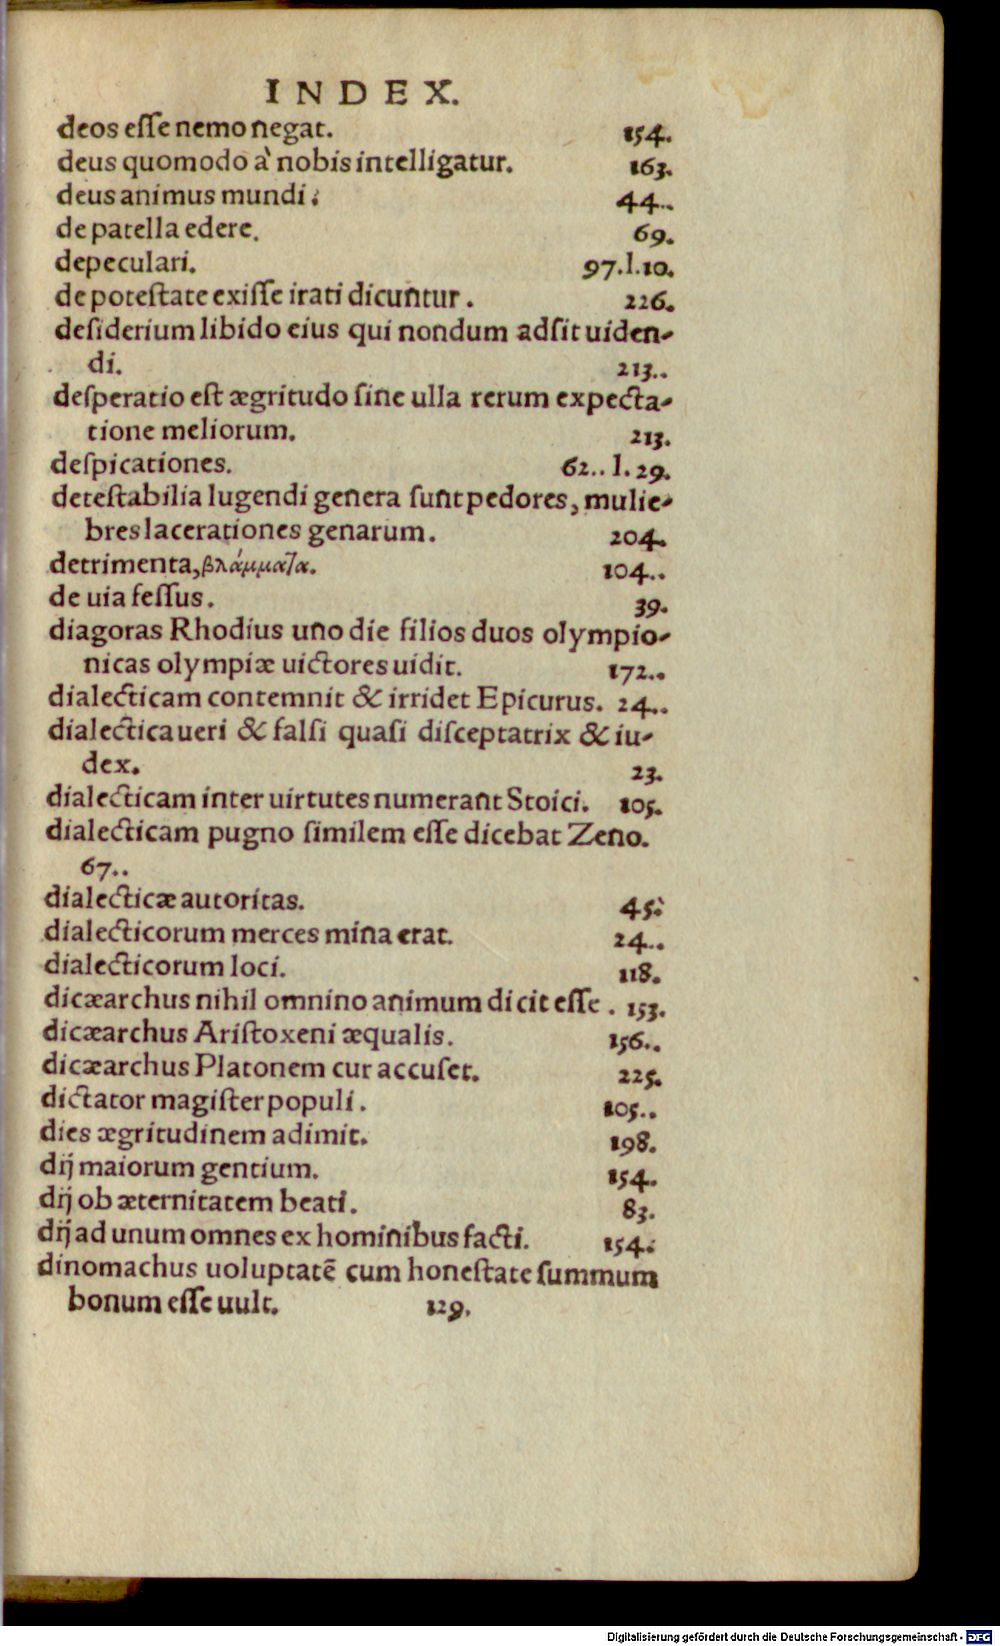 INDEX.
deos esse nemo negat. 154.
deus quomodo à nobis intelligatur. 163.
deus animus mundi. 44..
de patella edere. 69.
depeculari. 97.l.10.
de potestate exisse irati dicuntur. 226.
desiderium libido eius qui nondum adsit uiden-
di. 213..
desperatio est ægritudo sine ulla rerum expecta-
tione meliorum. 213.
despicationes. 62.. l. 29.
detestabilia lugendi genera sunt pedores, mulie-
bres lacerationes genarum. 204.
detrimenta, βλάμματα. 104..
de uia fessus. 39.
diagoras Rhodius uno die filios duos olympio-
nicas olympiæ uictores uidit. 172..
dialecticam contemnit & irridet Epicurus. 24..
dialectica ueri & falsi quasi disceptatrix & iu-
dex. 23.
dialecticam inter uirtutes numerant Stoici. 105.
dialecticam pugno similem esse dicebat Zeno.
67..
dialecticæ autoritas. 45:
dialecticorum merces mina erat. 24..
dialecticorum loci. 118.
dicæarchus nihil omnino animum dicit esse. 153.
dicæarchus Aristoxeni æqualis. 156..
dicæarchus Platonem cur accuset. 225.
dictator magister populi. 105..
dies ægritudinem adimit. 198.
dij maiorum gentium. 154.
dij ob æternitatem beati. 83.
dij ad unum omnes ex hominibus facti. 154.:
dinomachus uoluptatē cum honestate summum
bonum esse uult. 129.
Digitalisierung gefördert durch die Deutsche Forschungsgemeinschaft - DFG